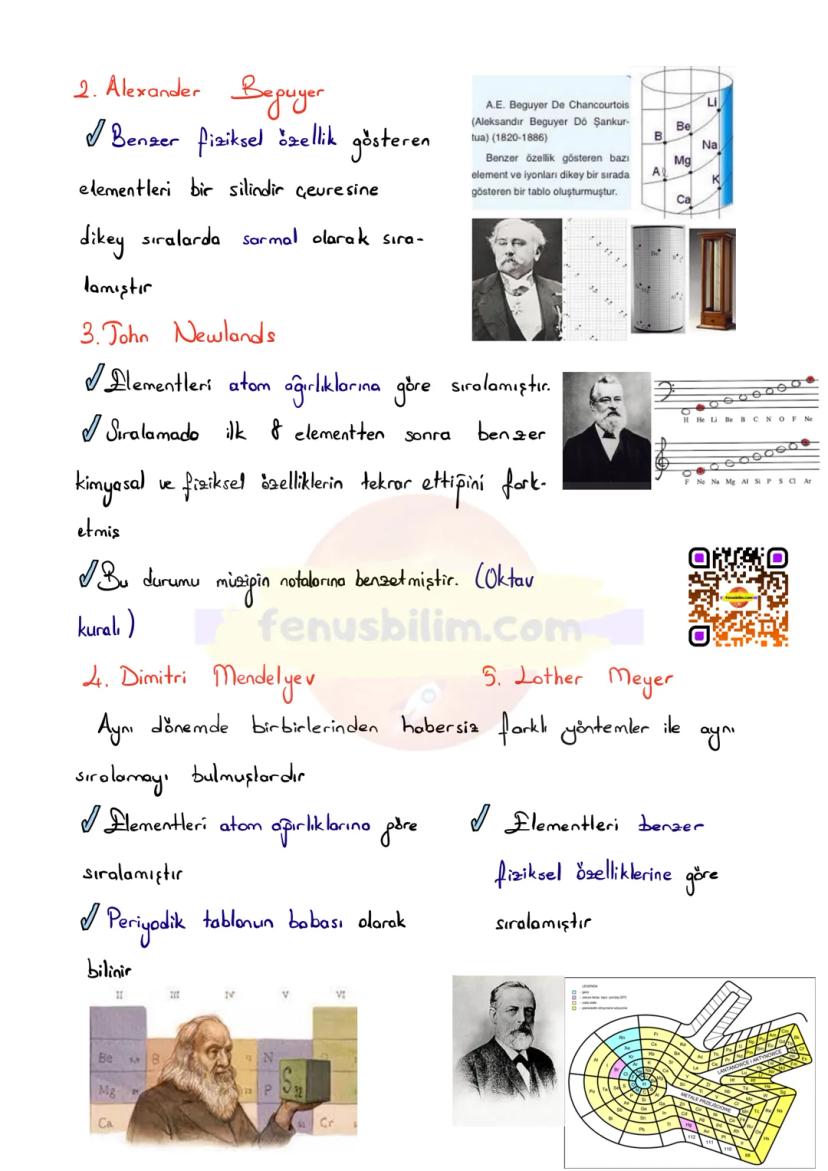 2. Alexander Beguyer
Benzer fiziksel özellik gösteren
elementleri bir silindir çevresine
dikey sıralarda sarmal olarak sıra-
lamıştır
A.E. Beguyer De Chancourtois
(Aleksandır Beguyer Dö Şankur-
tua) (1820-1886)
Benzer özellik gösteren bazı
element ve iyonları dikey bir sırada
gösteren bir tablo oluşturmuştur.
Li
Be
B
Na
Mg
Al
K
Ca
3. John Newlands
Elementleri atom ağırlıklarına göre sıralamıştır.
Sıralamada ilk 8 elementten sonra benzer
kimyasal ve fiziksel özelliklerin tekrar ettiğini fark-
etmiş
Bu durumu müziğin notalarına benzetmiştir. (Oktav
kuralı)
H He Li Be B C N O F Ne
F Ne Na Mg Al Si P S Cl Ar
fenusbilim.com
4. Dimitri Mendelyev
5. Lother Meyer
Aynı dönemde birbirlerinden habersiz farklı yöntemler ile aynı
sıralamayı bulmuşlardır
Elementleri atom ağırlıklarına göre
sıralamıştır
Periyodik tablonun babası olarak
bilinir
Elementleri benzer
fiziksel özelliklerine göre
sıralamıştır
II III IV V VI
Be B N
Mg P S 32
Ca Cr
LEGENDA
LANTANOWCE I AKTYNOWCE
METALE PRZEJŚCIOWE
112 111 110